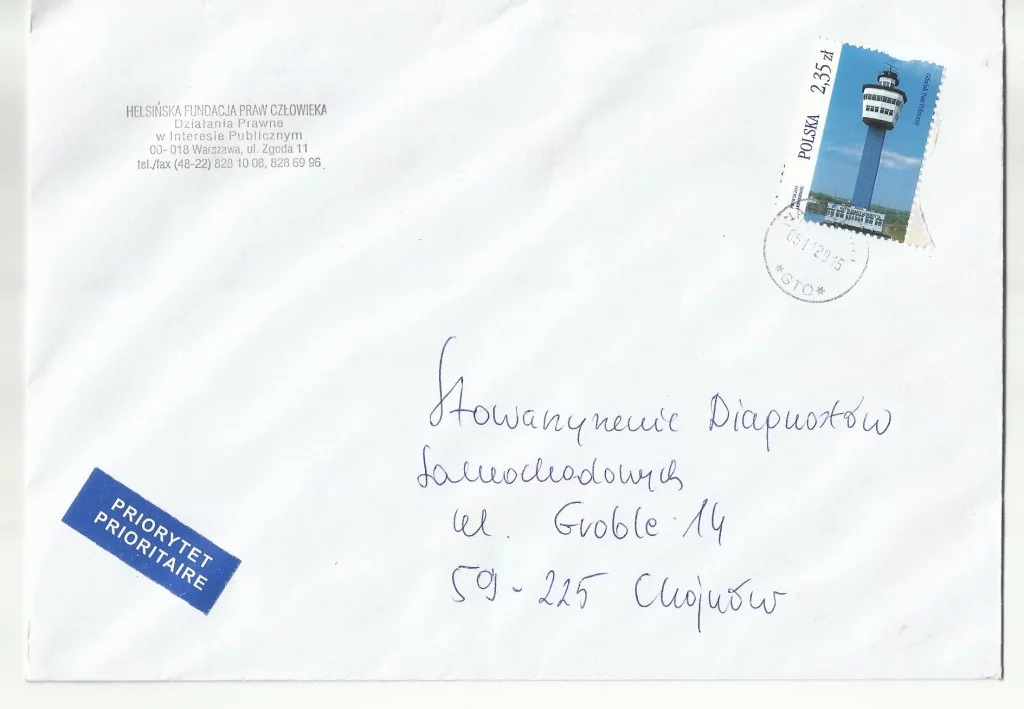 HELSIŃSKA FUNDACJA PRAW CZŁOWIEKA
Działania Prawne
w Interesie Publicznym
00-018 Warszawa, ul. Zgoda 11
tel./fax (48-22) 828 10 08, 828 69 96
POLSKA 2,35 zł
Gdańsk Port Północny
*GTO*
Stowarzyszenie Diagnostów
Samochodowych
ul. Groble 14
59-225 Chojnów
PRIORYTET
PRIORITAIRE